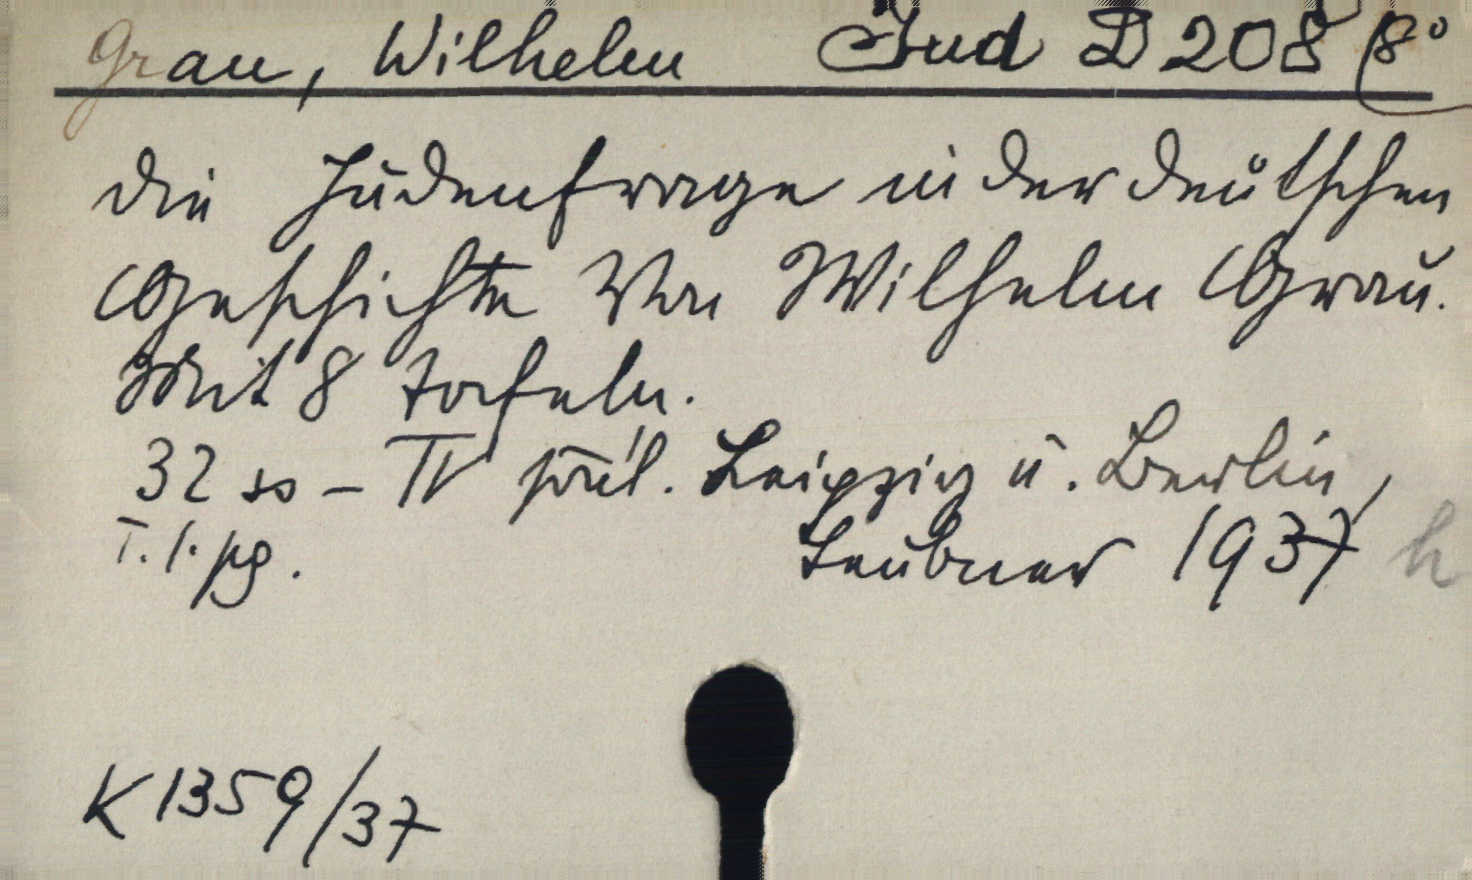 Grau, Wilhelm Jud D 208 8°
Die Judenfrage in der deutschen
Geschichte Von Wilhelm Grau.
Mit 8 Tafeln.
32 ss – IV příl. Leipzig u. Berlin,
T. l. pg. Teubner 1937 h
K 1359/37